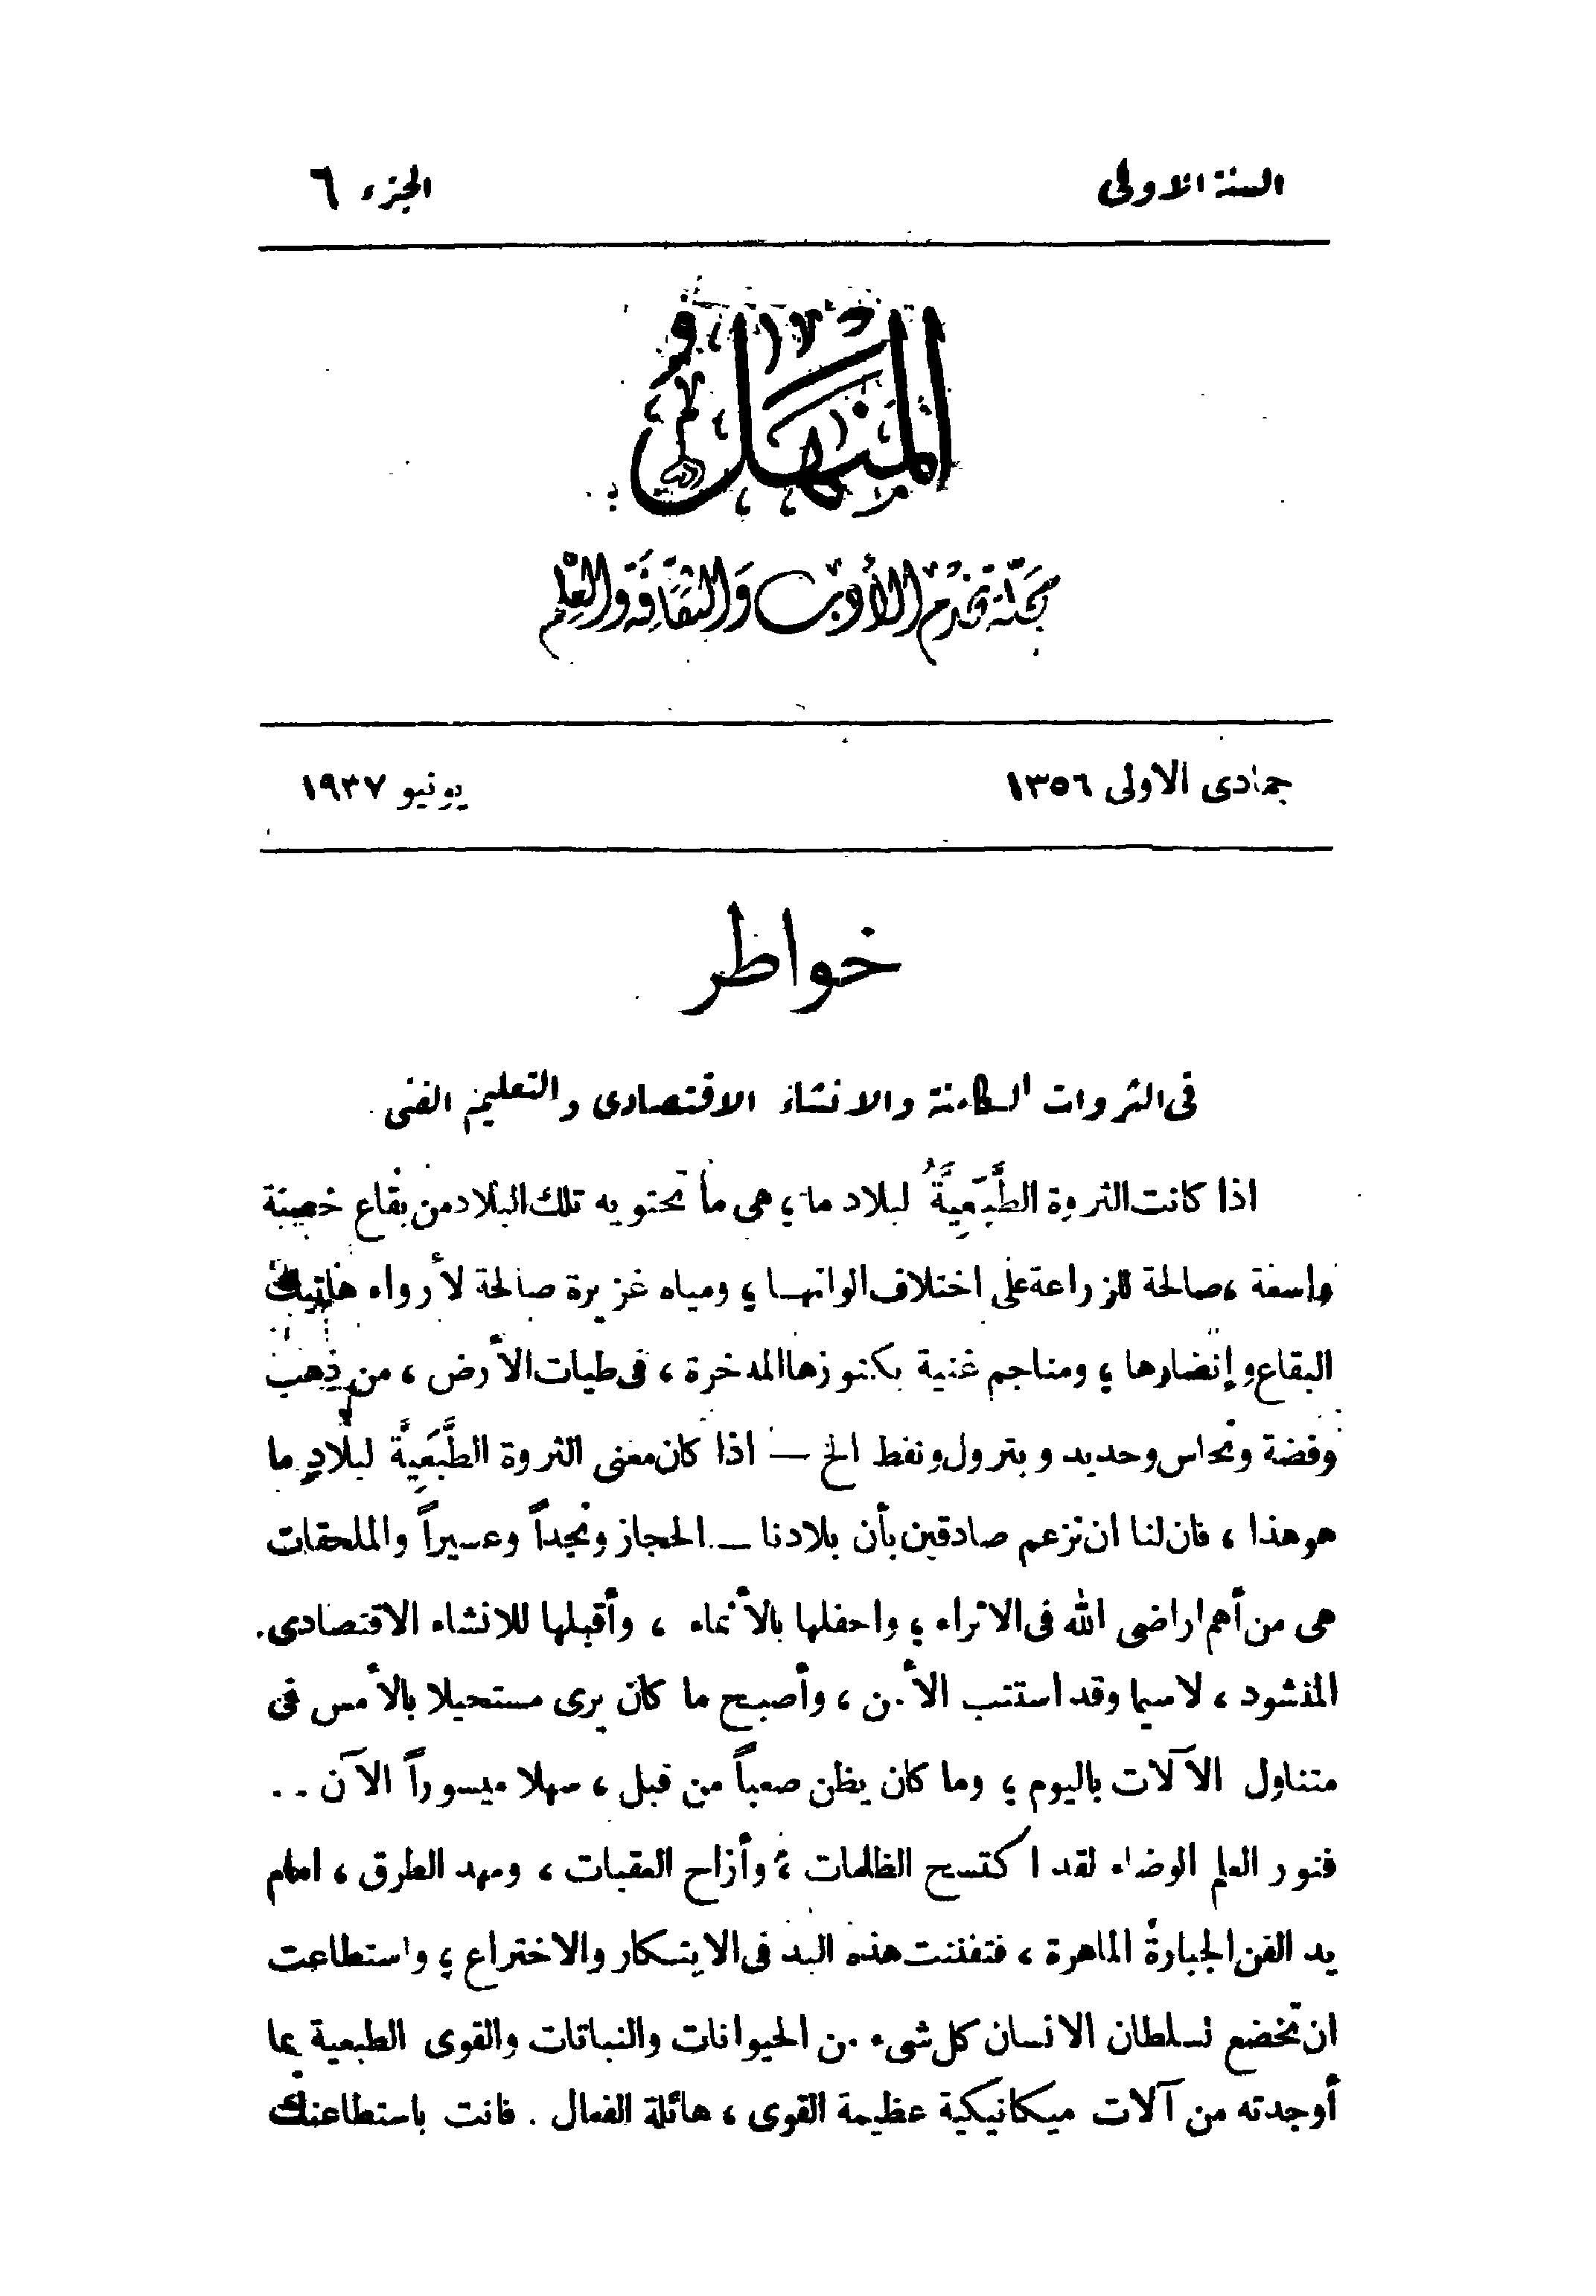 السنة الاولى
الجزء ٦
المنهل
مجلة تخدم الأدب والثقافة والعلم
جمادى الاولى ١٣٥٦
يونيو ١٩٣٧
خواطر
فى الثروات الكامنة والانشاء الاقتصادى والتعليم الفنى
اذا كانت الثروة الطَّبَعِيَّةُ لبلاد ما ؛ هى ما تحتويه تلك البلاد من بقاع خصبة
واسعة ، صالحة للزراعة على اختلاف الوانها ؛ ومياه غزيرة صالحة لأرواء هاتيك
البقاع وإنضارها ؛ ومناجم غنية بكنوزها المدخرة ، فى طيات الأرض ، من ذهب
وفضة ونحاس وحديد وبترول ونفط الخ — اذا كان معنى الثروة الطَّبَعِيَّة لبلادٍ ما
هو هذا ، فان لنا ان نزعم صادقين بأن بلادنا — الحجاز ونجداً وعسيراً والملحقات
هى من أهم اراضى الله فى الاثراء ؛ واحفلها بالأنماء ، وأقبلها للانشاء الاقتصادى
المنشود ، لاسيما وقد استتب الأمن ، وأصبح ما كان يرى مستحيلا بالأمس فى
متناول الآلات باليوم ؛ وما كان يظن صعباً من قبل ، سهلا ميسوراً الآن . .
فنور العلم الوضاء لقد اكتسح الظلمات ؛ وأزاح العقبات ، ومهد الطرق ، امام
يد الفن الجبارة الماهرة ، فتفننت هذه اليد فى الابتكار والاختراع ؛ واستطاعت
ان تخضع لسلطان الانسان كل شىء من الحيوانات والنباتات والقوى الطبعية بما
أوجدته من آلات ميكانيكية عظيمة القوى ، هائلة الفعال . فانت باستطاعتك